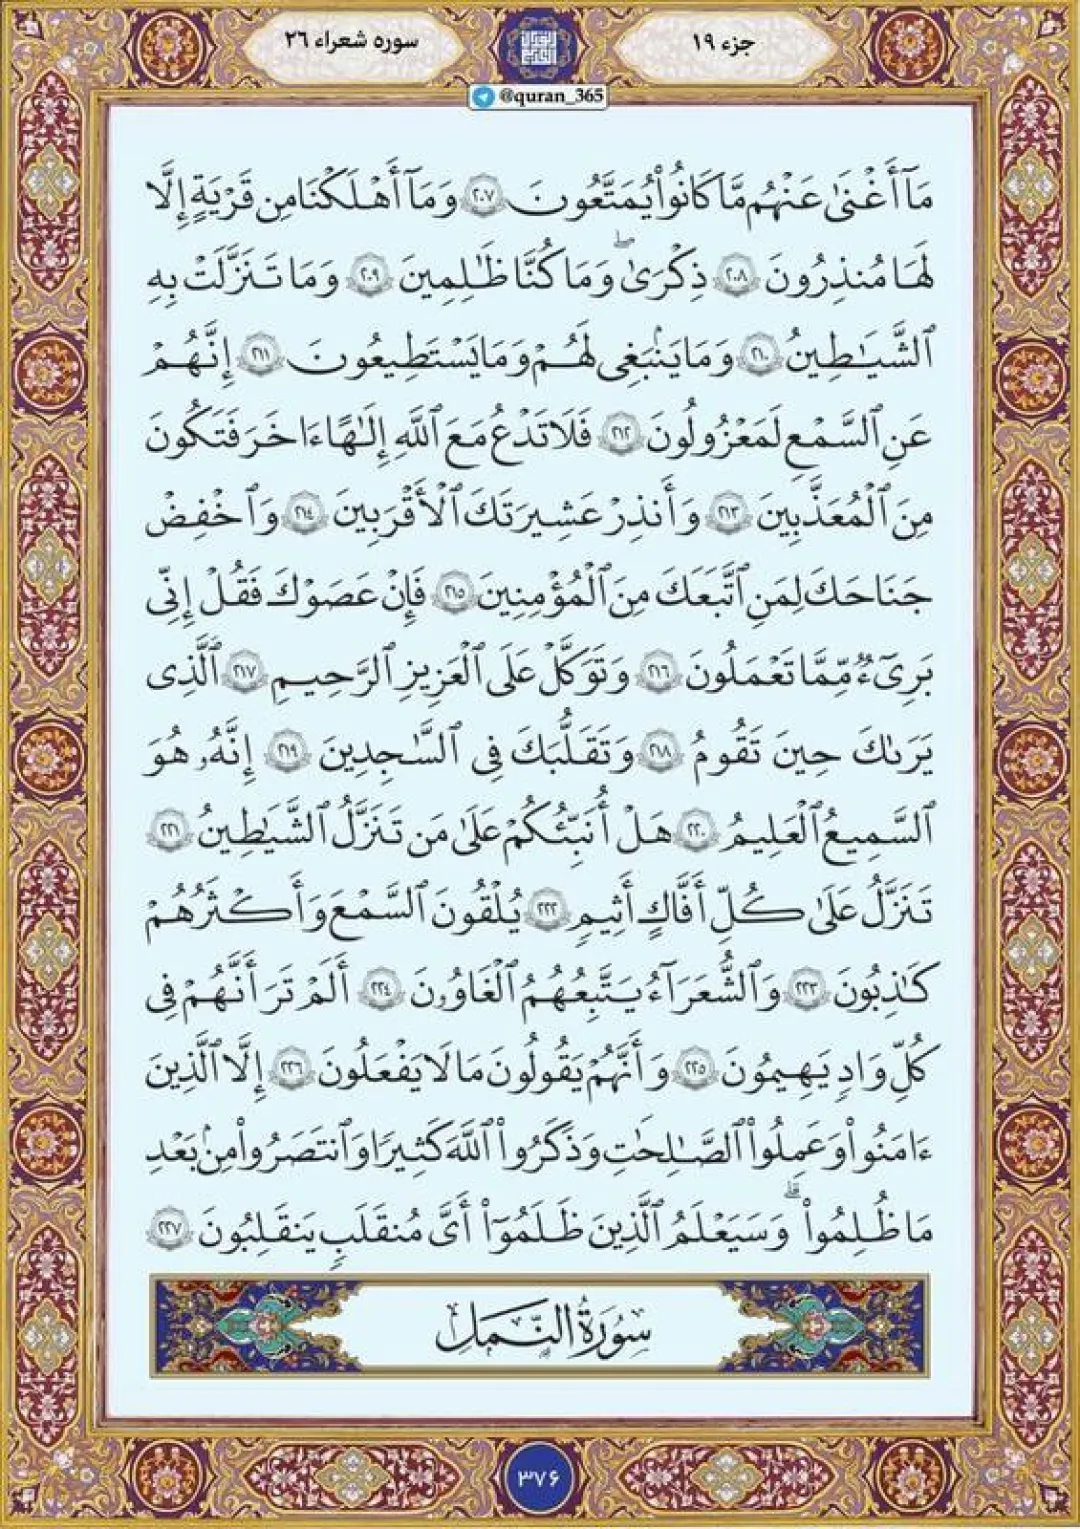 سوره شعراء ۲۶
جزء ۱۹
@quran_365
مَآ أَغْنَىٰ عَنْهُم مَّا كَانُوا۟ يُمَتَّعُونَ ٢٠٧ وَمَآ أَهْلَكْنَا مِن قَرْيَةٍ إِلَّا
لَهَا مُنذِرُونَ ٢٠٨ ذِكْرَىٰ وَمَا كُنَّا ظَٰلِمِينَ ٢٠٩ وَمَا تَنَزَّلَتْ بِهِ
ٱلشَّيَٰطِينُ ٢١٠ وَمَا يَنۢبَغِى لَهُمْ وَمَا يَسْتَطِيعُونَ ٢١١ إِنَّهُمْ
عَنِ ٱلسَّمْعِ لَمَعْزُولُونَ ٢١٢ فَلَا تَدْعُ مَعَ ٱللَّهِ إِلَٰهًا ءَاخَرَ فَتَكُونَ
مِنَ ٱلْمُعَذَّبِينَ ٢١٣ وَأَنذِرْ عَشِيرَتَكَ ٱلْأَقْرَبِينَ ٢١٤ وَٱخْفِضْ
جَنَاحَكَ لِمَنِ ٱتَّبَعَكَ مِنَ ٱلْمُؤْمِنِينَ ٢١٥ فَإِنْ عَصَوْكَ فَقُلْ إِنِّى
بَرِىٓءٌ مِّمَّا تَعْمَلُونَ ٢١٦ وَتَوَكَّلْ عَلَى ٱلْعَزِيزِ ٱلرَّحِيمِ ٢١٧ ٱلَّذِى
يَرَىٰكَ حِينَ تَقُومُ ٢١٨ وَتَقَلُّبَكَ فِى ٱلسَّٰجِدِينَ ٢١٩ إِنَّهُۥ هُوَ
ٱلسَّمِيعُ ٱلْعَلِيمُ ٢٢٠ هَلْ أُنَبِّئُكُمْ عَلَىٰ مَن تَنَزَّلُ ٱلشَّيَٰطِينُ ٢٢١
تَنَزَّلُ عَلَىٰ كُلِّ أَفَّاكٍ أَثِيمٍ ٢٢٢ يُلْقُونَ ٱلسَّمْعَ وَأَكْثَرُهُمْ
كَٰذِبُونَ ٢٢٣ وَٱلشُّعَرَآءُ يَتَّبِعُهُمُ ٱلْغَاوُۥنَ ٢٢٤ أَلَمْ تَرَ أَنَّهُمْ فِى
كُلِّ وَادٍ يَهِيمُونَ ٢٢٥ وَأَنَّهُمْ يَقُولُونَ مَا لَا يَفْعَلُونَ ٢٢٦ إِلَّا ٱلَّذِينَ
ءَامَنُوا۟ وَعَمِلُوا۟ ٱلصَّٰلِحَٰتِ وَذَكَرُوا۟ ٱللَّهَ كَثِيرًا وَٱنتَصَرُوا۟ مِنۢ بَعْدِ
مَا ظُلِمُوا۟ ۗ وَسَيَعْلَمُ ٱلَّذِينَ ظَلَمُوٓا۟ أَىَّ مُنقَلَبٍ يَنقَلِبُونَ ٢٢٧
سُورَةُ النَّمْلِ
۳۷۶